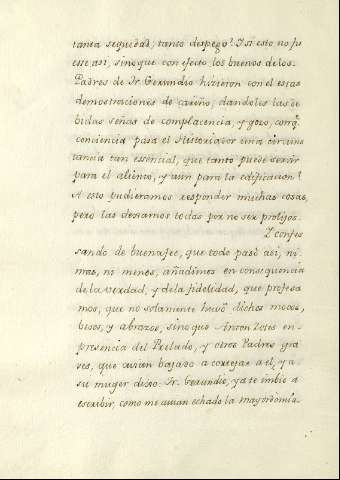 tanta sequedad, tanto despego? I si esto no fu
esse asi, sino que con efecto los buenos de los
Padres de Fr. Gerundio hicieron con el estas
demostraciones de cariño, dandoles las de
bidas señas de complacencia, y gozo, con q.
conciencia passa el Historiador una circuns
tancia tan essencial, que tanto puede servir
para el aliento, y aun para la edificacion?
A esto pudieramos responder muchas cosas,
pero las dexamos todas por no ser prolijos.
I confes
sando de buena fee, que todo pasó asi, ni
mas, ni menos, añadimos en consequencia
de la verdad, y de la fidelidad, que profesa
mos, que no solamente huvo dichos mocos,
besos, y abrazos, sino que Anton Zotes en
presencia del Prelado, y otros Padres gra
ves, que avian bajado a cortejar a el, y a
su muger dixo: Fr. Gerundio, ya te imbie a
escribir, como me avian echado la mayordomia.